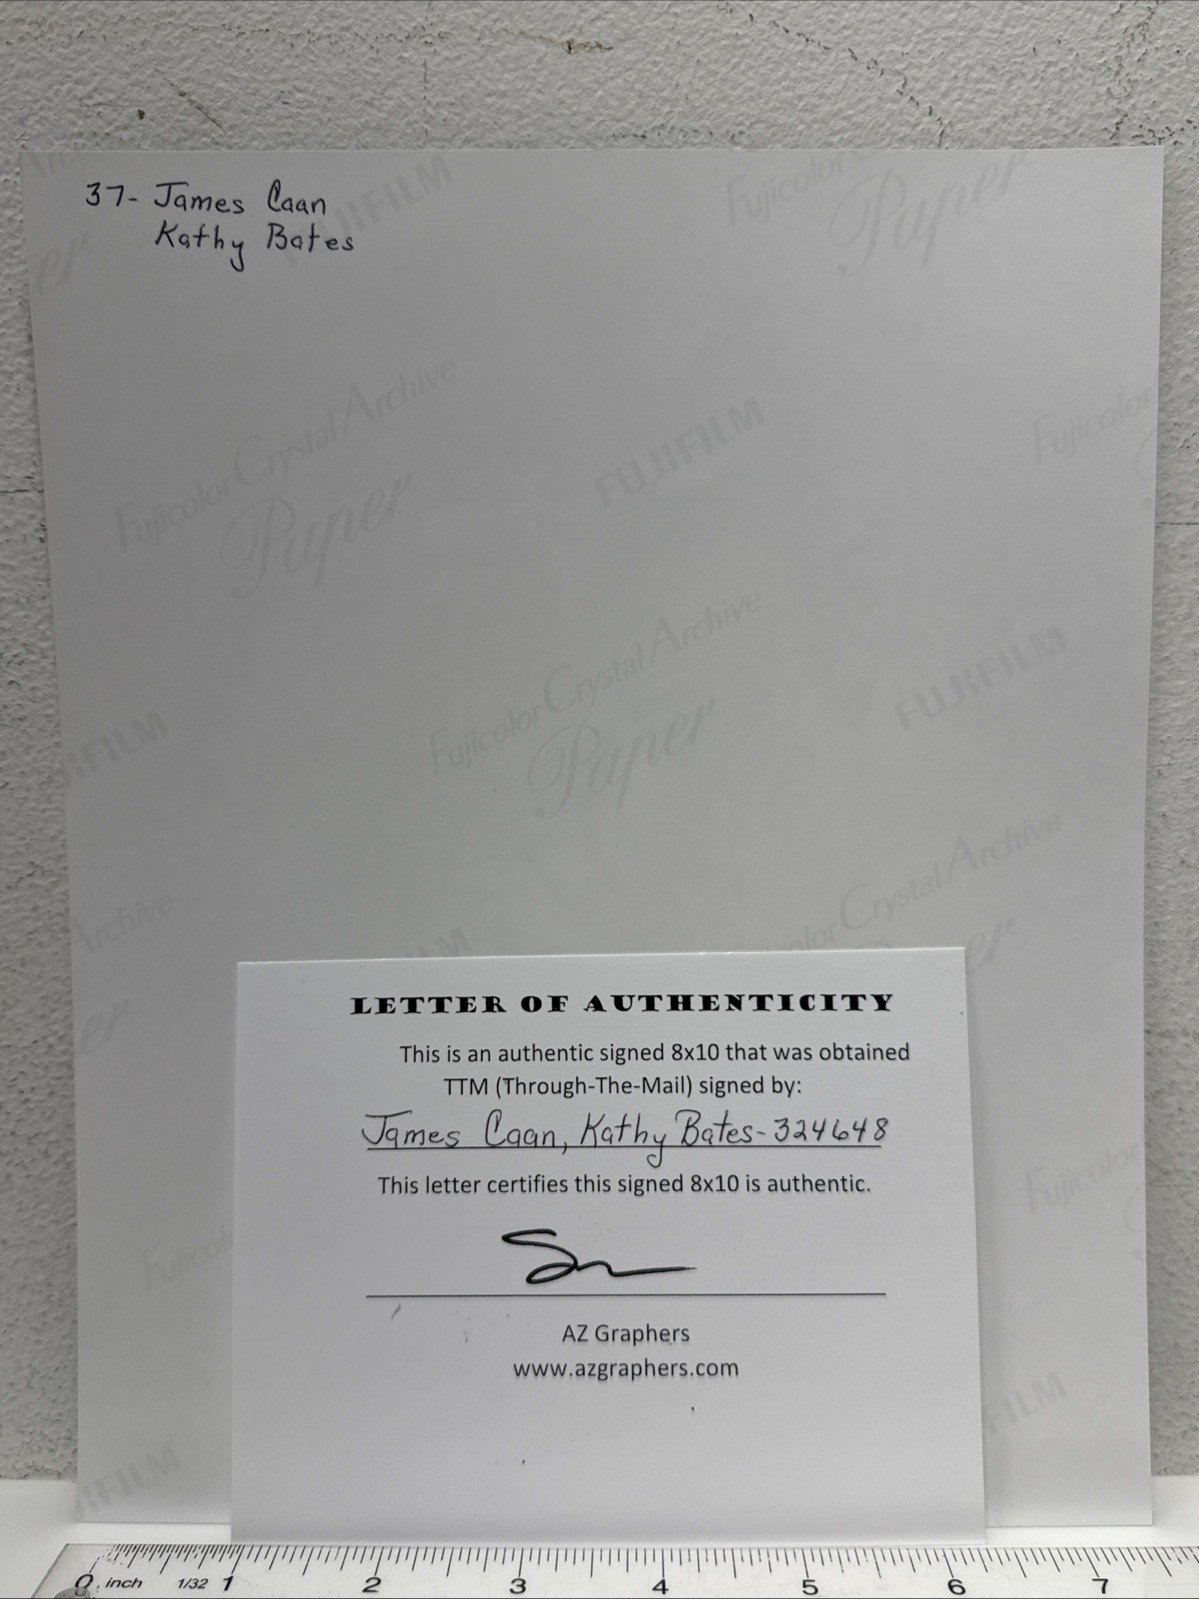 37- James Caan
Kathy Bates
FUJIFILM
Fujicolor
Paper
Fujicolor Crystal Archive
Paper
FUJIFILM
Fujicolor
Fujicolor Crystal Archive
Paper
FUJIFILM
Crystal Archive
Archive
LETTER OF AUTHENTICITY
This is an authentic signed 8x10 that was obtained
TTM (Through-The-Mail) signed by:
James Caan, Kathy Bates- 324648
This letter certifies this signed 8x10 is authentic.
AZ Graphers
www.azgraphers.com
Fujicolor
0 inch 1/32 1 2 3 4 5 6 7